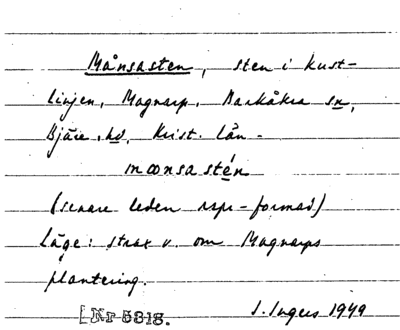 Månsasten, sten i kust-
linjen, Magnarp, Barkåkra sn,
Bjäre hd, Krist. län -
mɔnsastén
(senare leden rspr-formad)
Läge: strax v. om Magnarps
plantering.
[Nr 5318. I. Ingers 1949